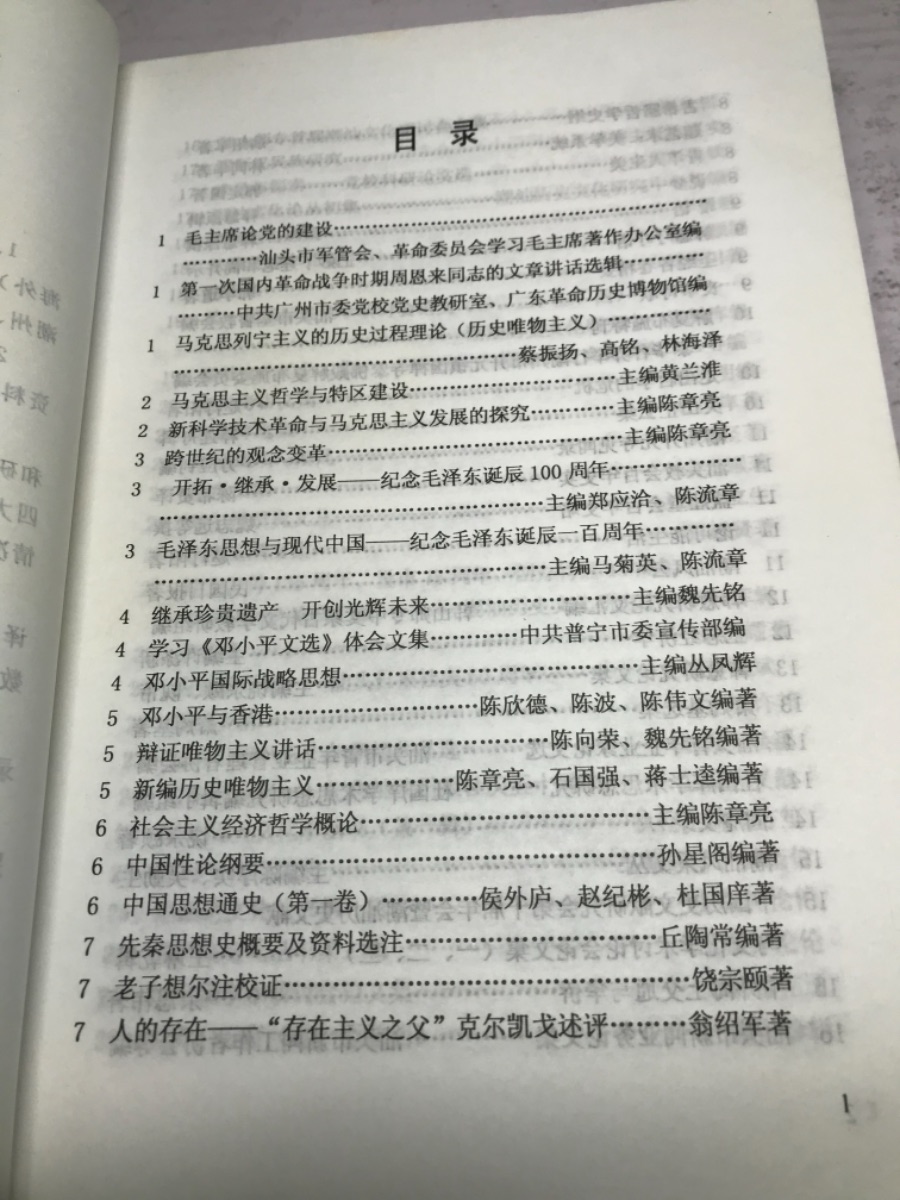 目 录
1 毛主席论党的建设……………………………………………
…………汕头市军管会、革命委员会学习毛主席著作办公室编
1 第一次国内革命战争时期周恩来同志的文章讲话选辑…………
…………中共广州市委党校党史教研室、广东革命历史博物馆编
1 马克思列宁主义的历史过程理论（历史唯物主义）……………
……………………………………………蔡振扬、高铭、林海泽
2 马克思主义哲学与特区建设…………………………主编黄兰淮
2 新科学技术革命与马克思主义发展的探究…………主编陈章亮
3 跨世纪的观念变革……………………………………主编陈章亮
3 开拓·继承·发展——纪念毛泽东诞辰100周年………………
………………………………………………主编郑应洽、陈流章
3 毛泽东思想与现代中国——纪念毛泽东诞辰一百周年…………
………………………………………………主编马菊英、陈流章
4 继承珍贵遗产 开创光辉未来………………………主编魏先铭
4 学习《邓小平文选》体会文集…………中共普宁市委宣传部编
4 邓小平国际战略思想…………………………………主编丛凤辉
5 邓小平与香港………………………陈欣德、陈波、陈伟文编著
5 辩证唯物主义讲话…………………………陈向荣、魏先铭编著
5 新编历史唯物主义………………陈章亮、石国强、蒋士逵编著
6 社会主义经济哲学概论………………………………主编陈章亮
6 中国性论纲要…………………………………………孙星阁编著
6 中国思想通史（第一卷）…………侯外庐、赵纪彬、杜国庠著
7 先秦思想史概要及资料选注…………………………丘陶常编著
7 老子想尔注校证…………………………………………饶宗颐著
7 人的存在——“存在主义之父”克尔凯戈述评………翁绍军著
1
1
海外
潮州、
2
资料
和研
四大
情况
译
数
录